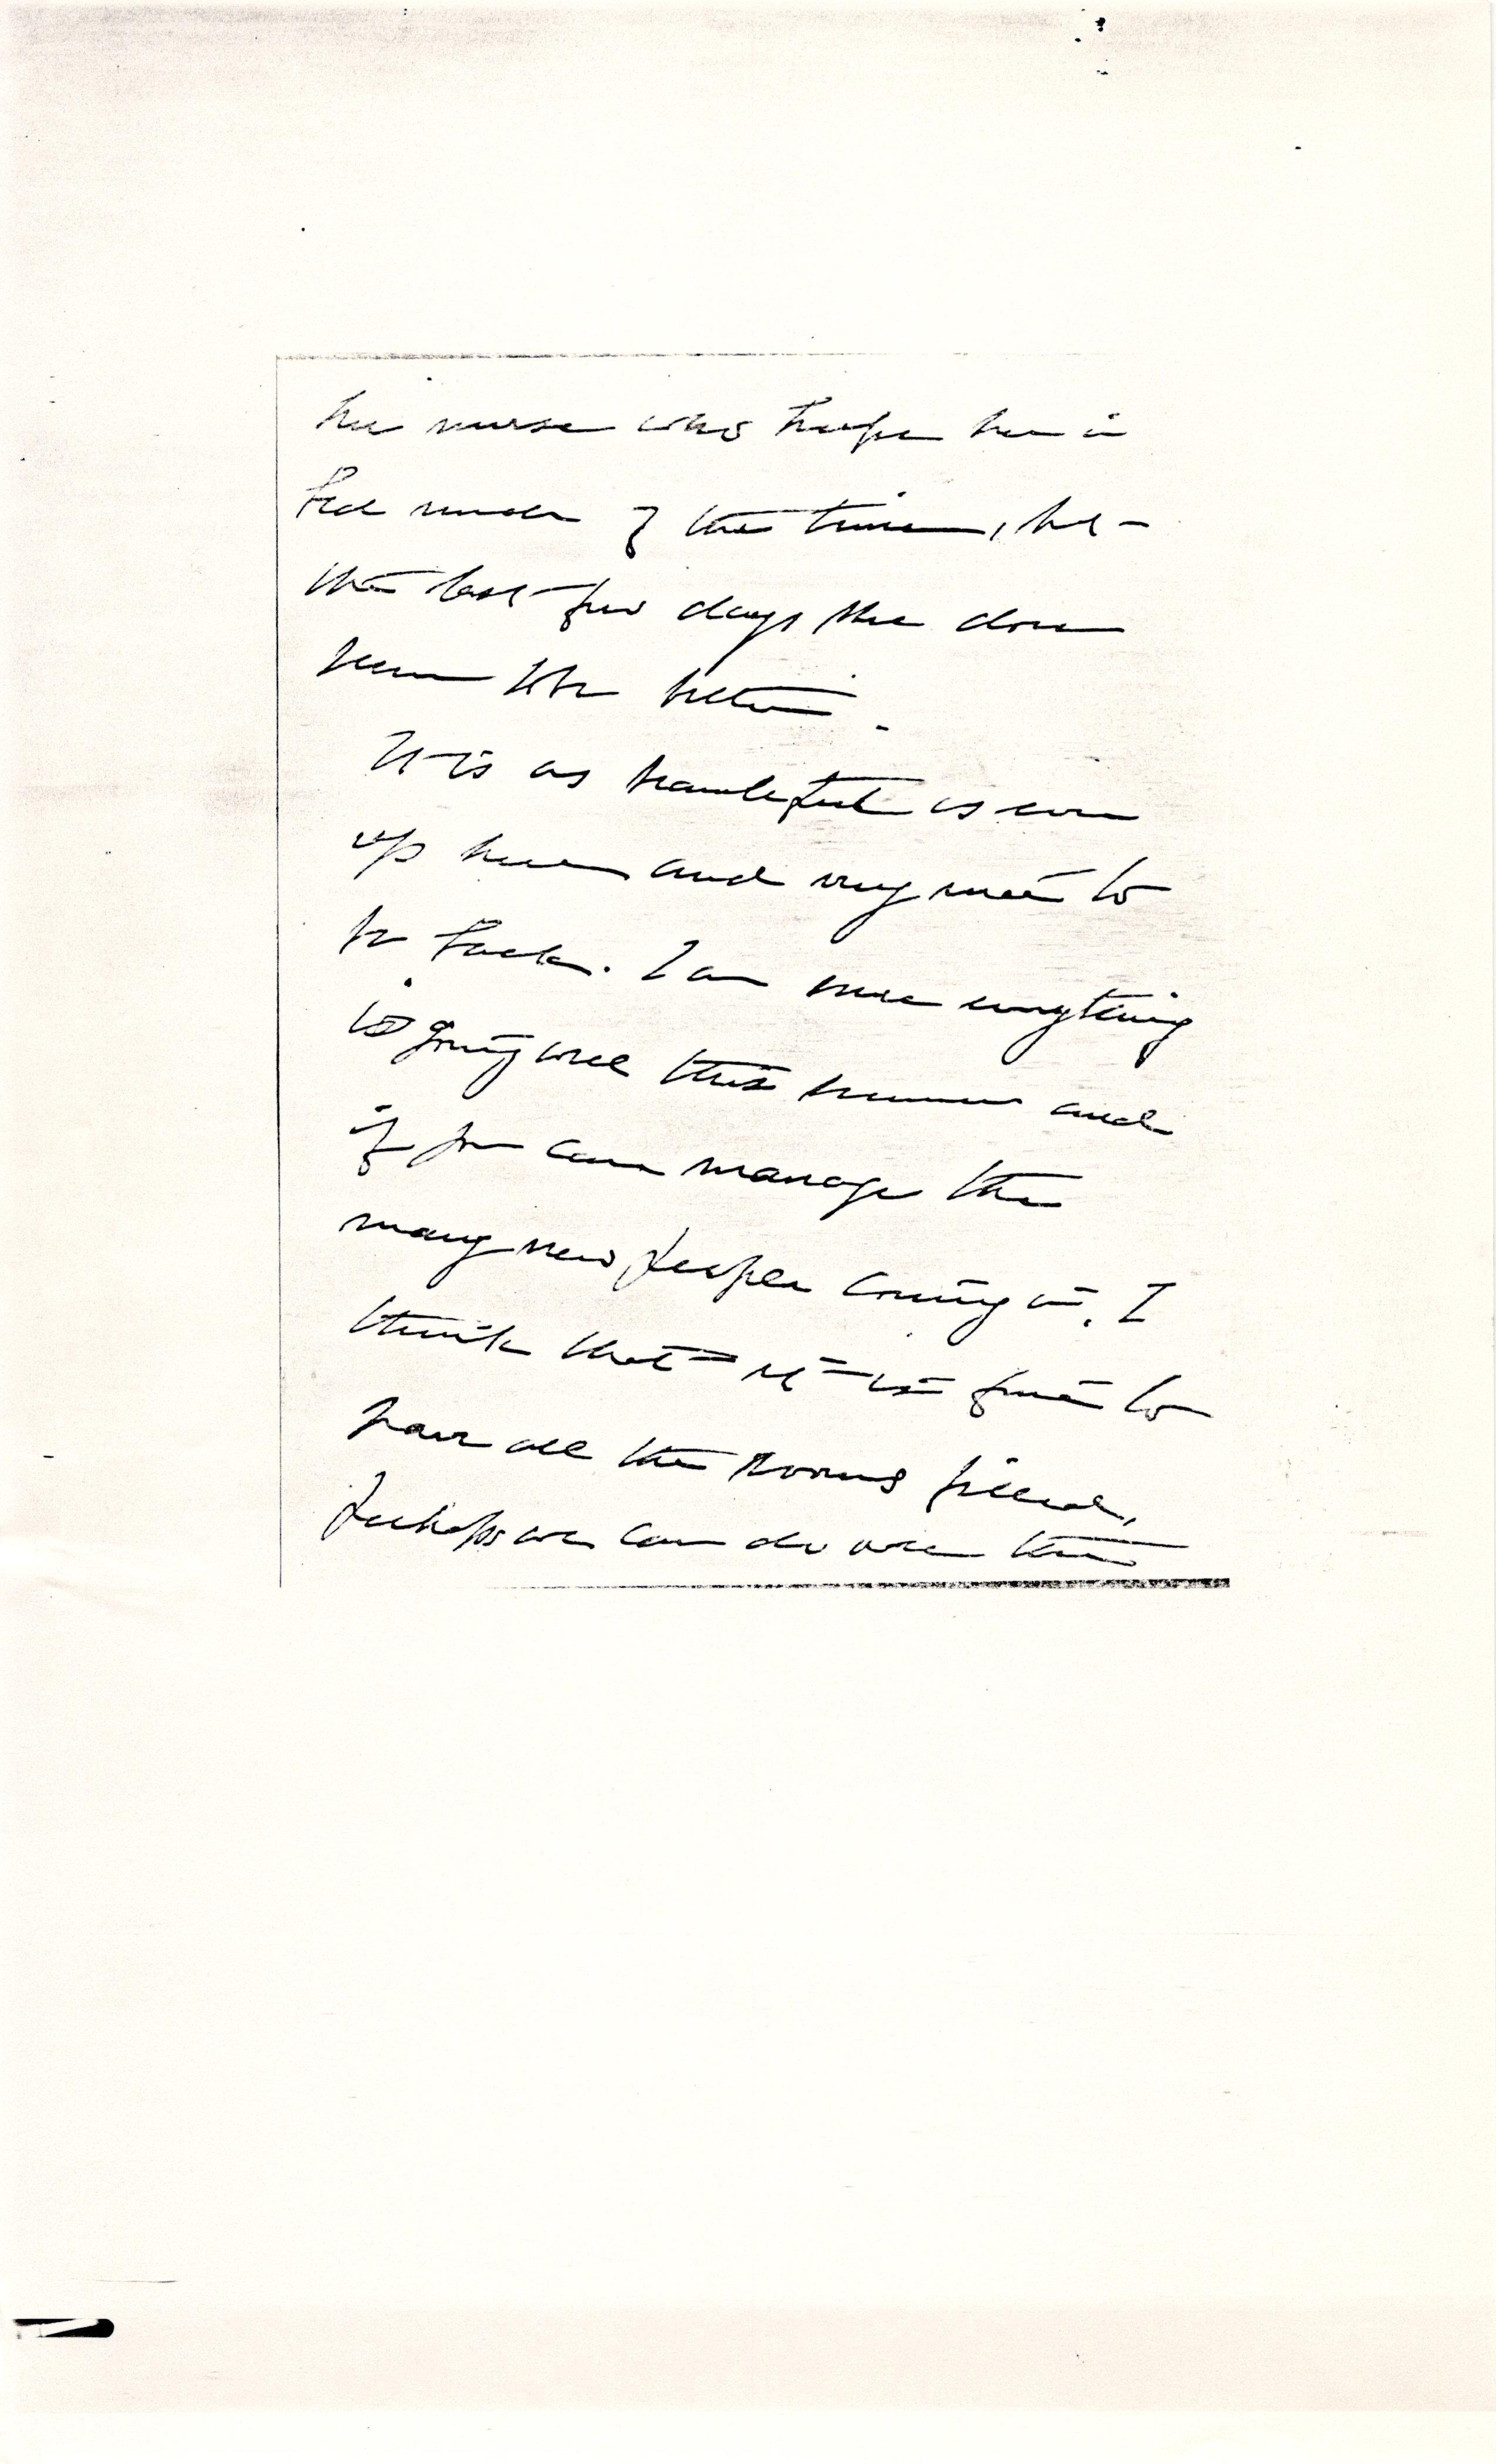 her nurse who keeps her in
bed much of the time, but
the last few days she does
seem to be better.
It is as beautiful as ever
up here and very nice to
be back. I am sure everything
is going well this summer and
if you can manage the
many new people coming in, I
think that it is fine to
have all the rooms filled,
perhaps we can do over the